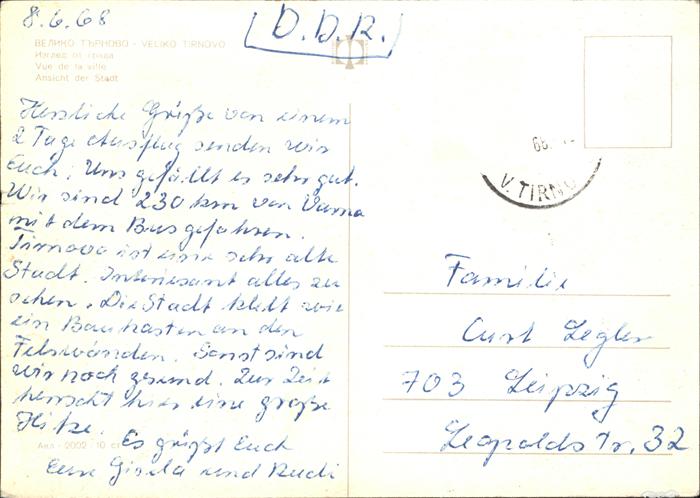 8.6.68
D.D.R.
ВЕЛИКО ТЪРНОВО - VELIKO TIRNOVO
Изглед от града
Vue de la ville
Ansicht der Stadt
Herzliche Grüße von einem
2 Tage Ausflug senden wir
Euch. Uns gefällt es sehr gut.
Wir sind 230 km von Varna
mit dem Bus gefahren.
Tirnovo ist eine sehr alte
Stadt. Interessant alles zu
sehen. Die Stadt klebt wie
ein Baukasten an den
Felswänden. Sonst sind
wir noch gesund. Zur Zeit
herrscht hier eine große
Hitze.
Es grüßt Euch
Eure Gisela und Rudi
Акл - 2002 - 10
V. TIRNOVO
Familie
Curt Zegler
703 Leipzig
Leopoldstr. 32